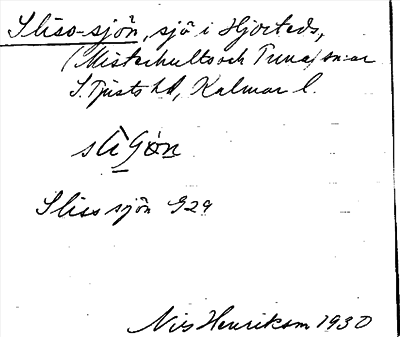 Sliso-sjön, sjö i Hjorteds,
(Misterhults och Tuna) sn:ar
S. Tjusts hd, Kalmar l.
Slissjön G29
Nils Henrikson 1930